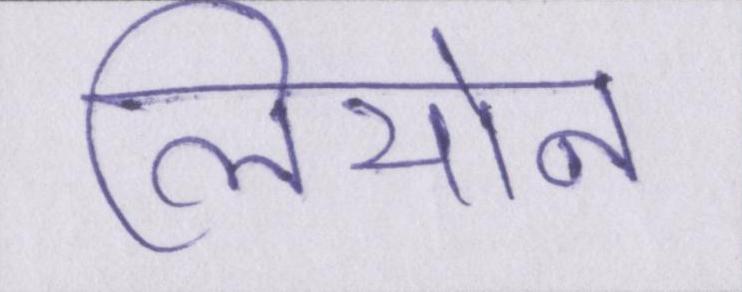 लियोन